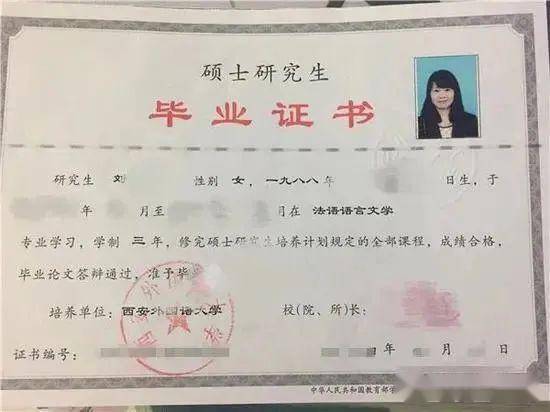 硕士研究生
毕业证书
研究生 刘 性别 女，一九八八年 日生，于
年 月至 月在 法语语言文学
专业学习，学制 三 年，修完硕士研究生培养计划规定的全部课程，成绩合格，
毕业论文答辩通过，准予毕
培养单位：西安外国语大学 校(院、所)长：
证书编号： 年 月
中华人民共和国教育部学